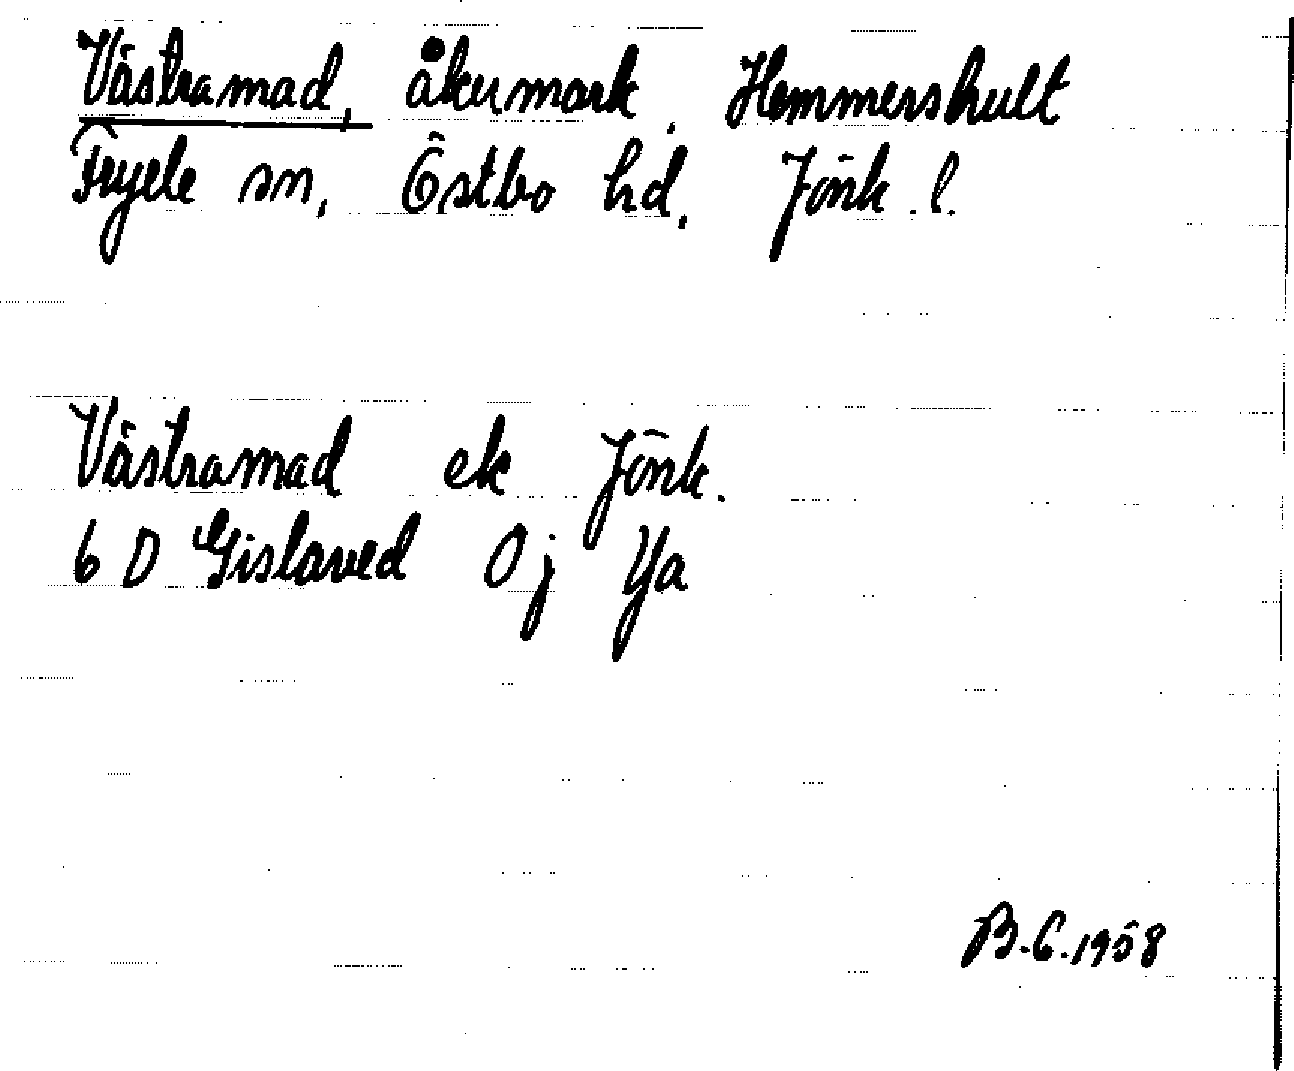 Västramad, åkermark, Hemmershult
Fryele sn, Östbo hd, Jönk. l.
Västramad ek Jönk.
6 D Gislaved 0 j Ya
B.C. 1958